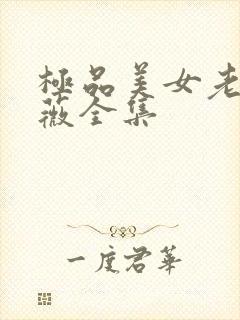 極品美女老
薇全集
一度君華